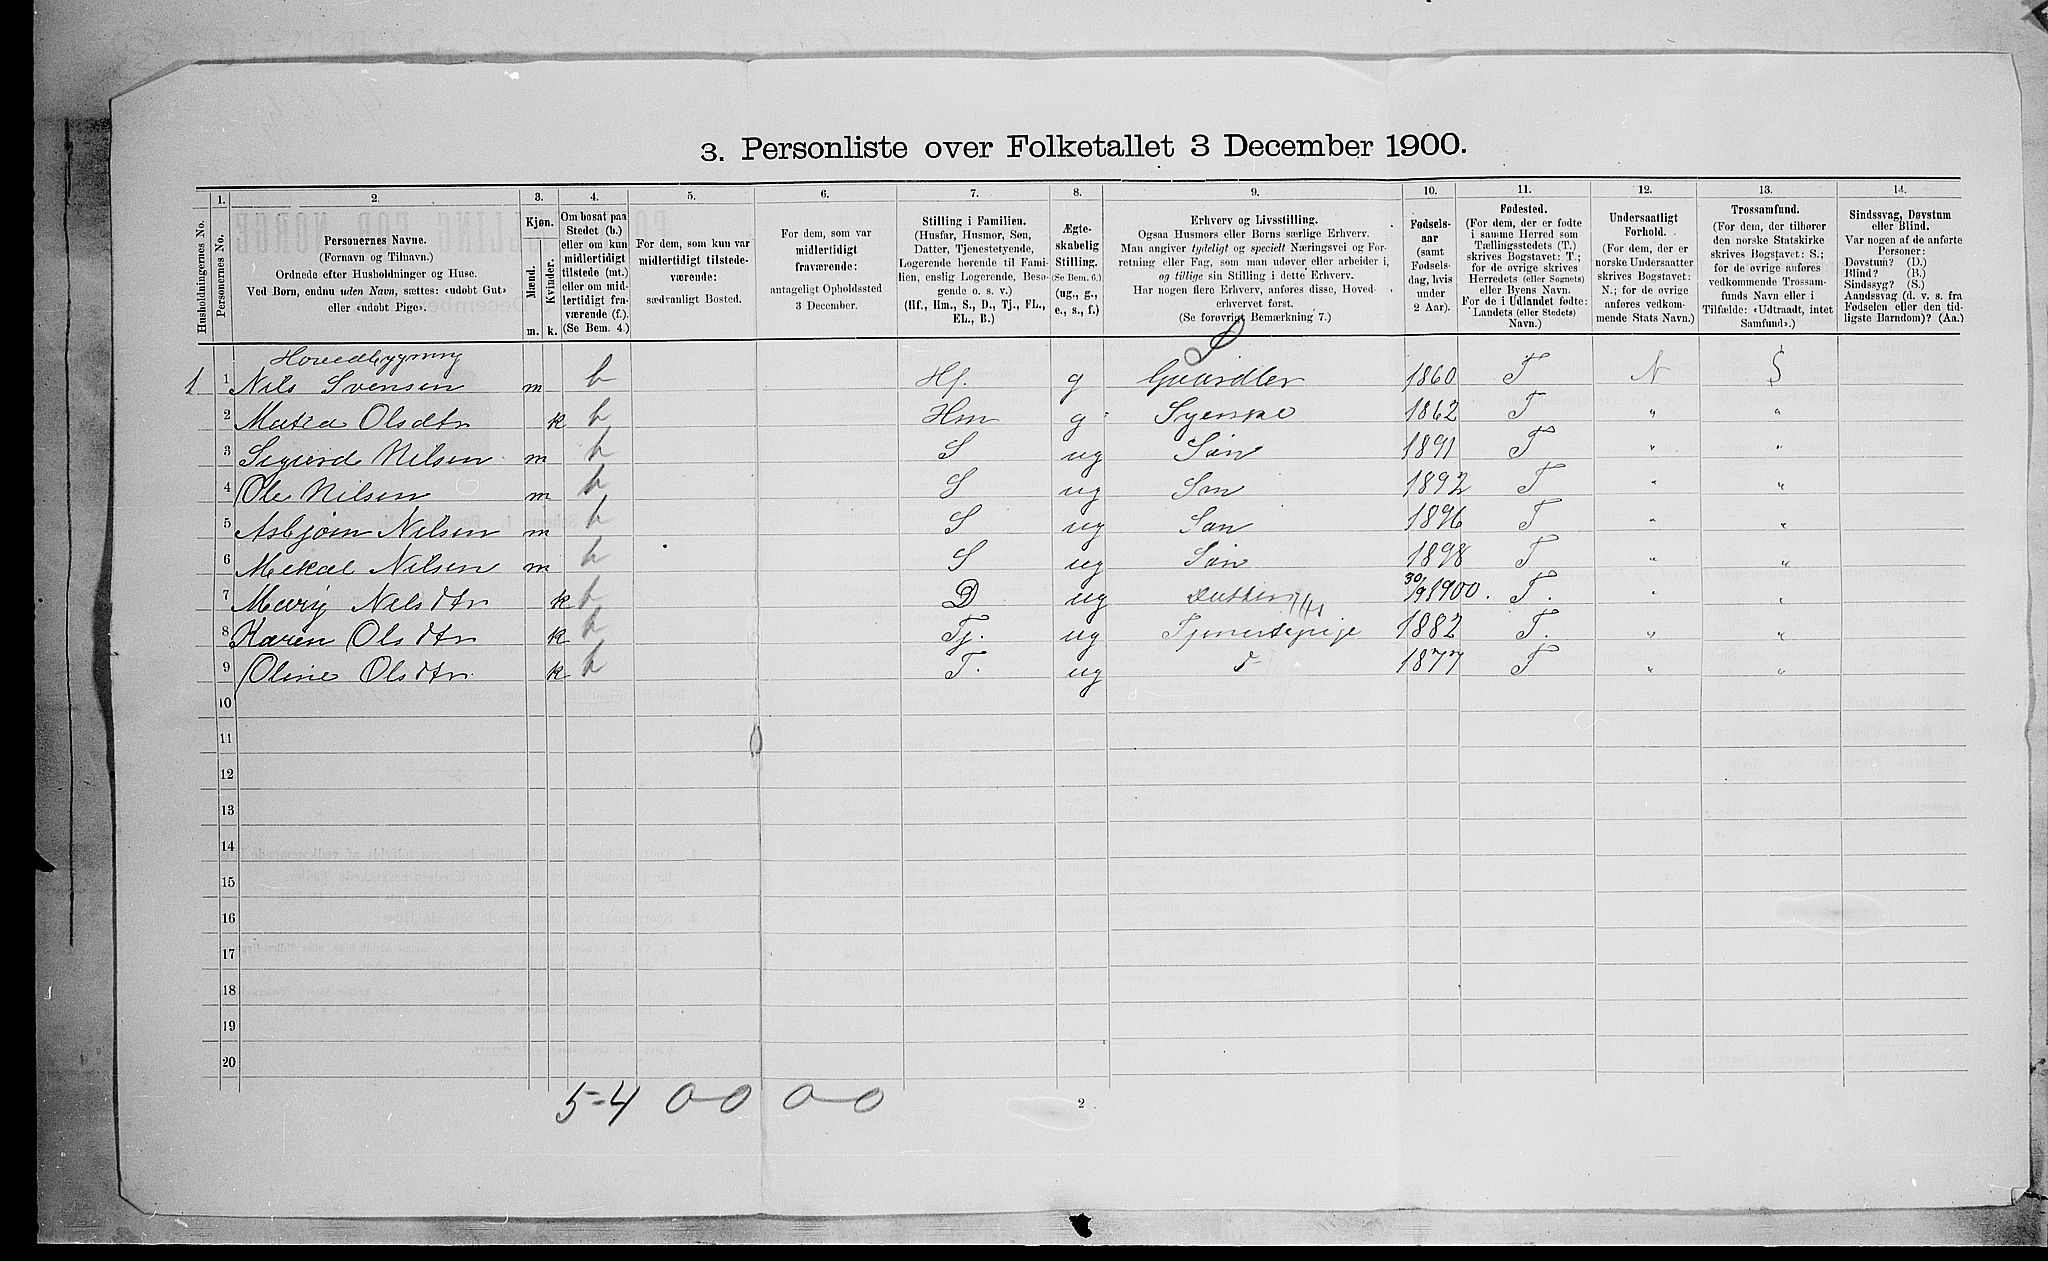 3. Personliste over Folketallet 3 December 1900.
Husholdningernes No.
1.
Personernes No.
2.
Personernes Navne.
(Fornavn og Tilnavn.)
Ordnede efter Husholdninger og Huse.
Ved Børn, endnu uden Navn, sættes: «udøbt Gut»
eller «udøbt Pige».
3.
Kjøn.
Mænd.
Kvinder.
m. k.
4.
Om bosat paa
Stedet (b.)
eller om kun
midlertidigt
tilstede (mt.)
eller om mid-
lertidigt fra-
værende (f.).
(Se Bem. 4.)
5.
For dem, som kun var
midlertidigt tilstede-
værende:
sædvanligt Bosted.
6.
For dem, som var
midlertidigt
fraværende:
antageligt Opholdssted
3 December.
7.
Stilling i Familien.
(Husfar, Husmor, Søn,
Datter, Tjenestetyende,
Logerende hørende til Fami-
lien, enslig Logerende, Besø-
gende o. s. v.)
(Hf., Hm., S., D., Tj., FL.,
EL., B.)
8.
Ægte-
skabelig
Stilling.
(Se Bem. 6.)
(ug., g.,
e., s., f.)
9.
Erhverv og Livsstilling.
Ogsaa Husmors eller Børns særlige Erhverv.
Man angiver tydeligt og specielt Næringsvei og For-
retning eller Fag, som man udøver eller arbeider i,
og tillige sin Stilling i dette Erhverv.
Har nogen flere Erhverv, anføres disse, Hoved-
erhvervet først.
(Se forøvrigt Bemærkning 7.)
10.
Fødsels-
aar
(samt
Fødsels-
dag, hvis
under
2 Aar).
11.
Fødested.
(For dem, der er fødte
i samme Herred som
Tællingsstedets (T.)
skrives Bogstavet: T.;
for de øvrige skrives
Herredets (eller Sognets)
eller Byens Navn.
For de i Udlandet fødte:
Landets (eller Stedets)
Navn.)
12.
Undersaatligt
Forhold.
(For dem, der er
norske Undersaatter
skrives Bogstavet:
N.; for de øvrige
anføres vedkom-
mende Stats Navn.)
13.
Trossamfund.
(For dem, der tilhører
den norske Statskirke
skrives Bogstavet: S.;
for de øvrige anføres
vedkommende Trossam-
funds Navn eller i
Tilfælde: «Udtraadt, intet
Samfund».)
14.
Sindssvag, Døvstum
eller Blind.
Var nogen af de anførte
Personer:
Døvstum? (D.)
Blind? (B.)
Sindssyg? (S.)
Aandssvag (d. v. s. fra
Fødselen eller den tid-
ligste Barndom)? (Aa.)
Hovedbygning
1 1 Nils Svensen m b Hf. g Gaardbr 1860 T N S
2 Matea Olsdtr k b Hm g Syerske 1862 T " "
3 Sigurd Nilsen m b S ug Søn 1891 T " "
4 Ole Nilsen m b S ug Søn 1892 T " "
5 Asbjørn Nilsen m b S ug Søn 1896 T " "
6 Mekal Nilsen m b S ug Søn 1898 T " "
7 Marig Nilsdtr k b D ug Datter 30/9 1900. T. " "
8 Karen Olsdtr k b Tj. ug Tjenestepige 1882 T. " "
9 Oline Olsdtr k b T. ug d- 1877 T " "
10
11
12
13
14
15
16
17
18
19
20
5-4 0-0 0-0
2